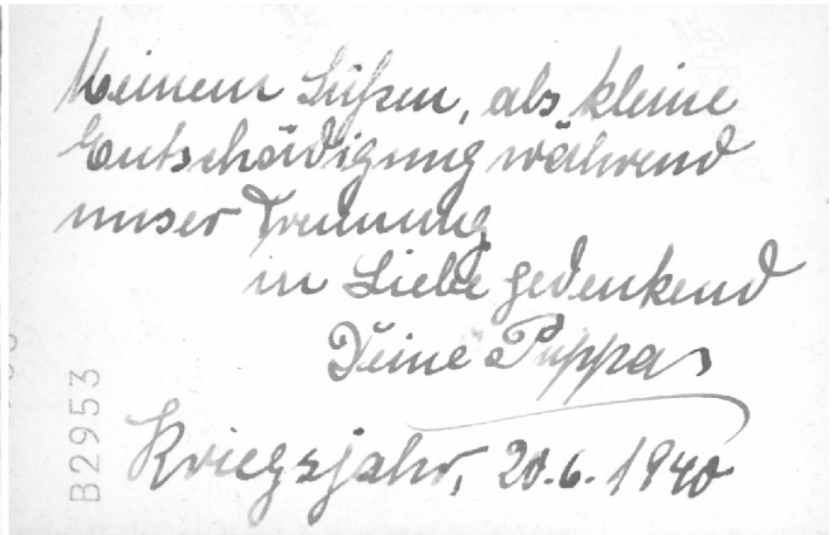 Meinem Süßen, als kleine
Entschädigung während
unser Trennung
in Liebe gedenkend
Deine Puppas
Kriegsjahr, 20.6.1940
B2953